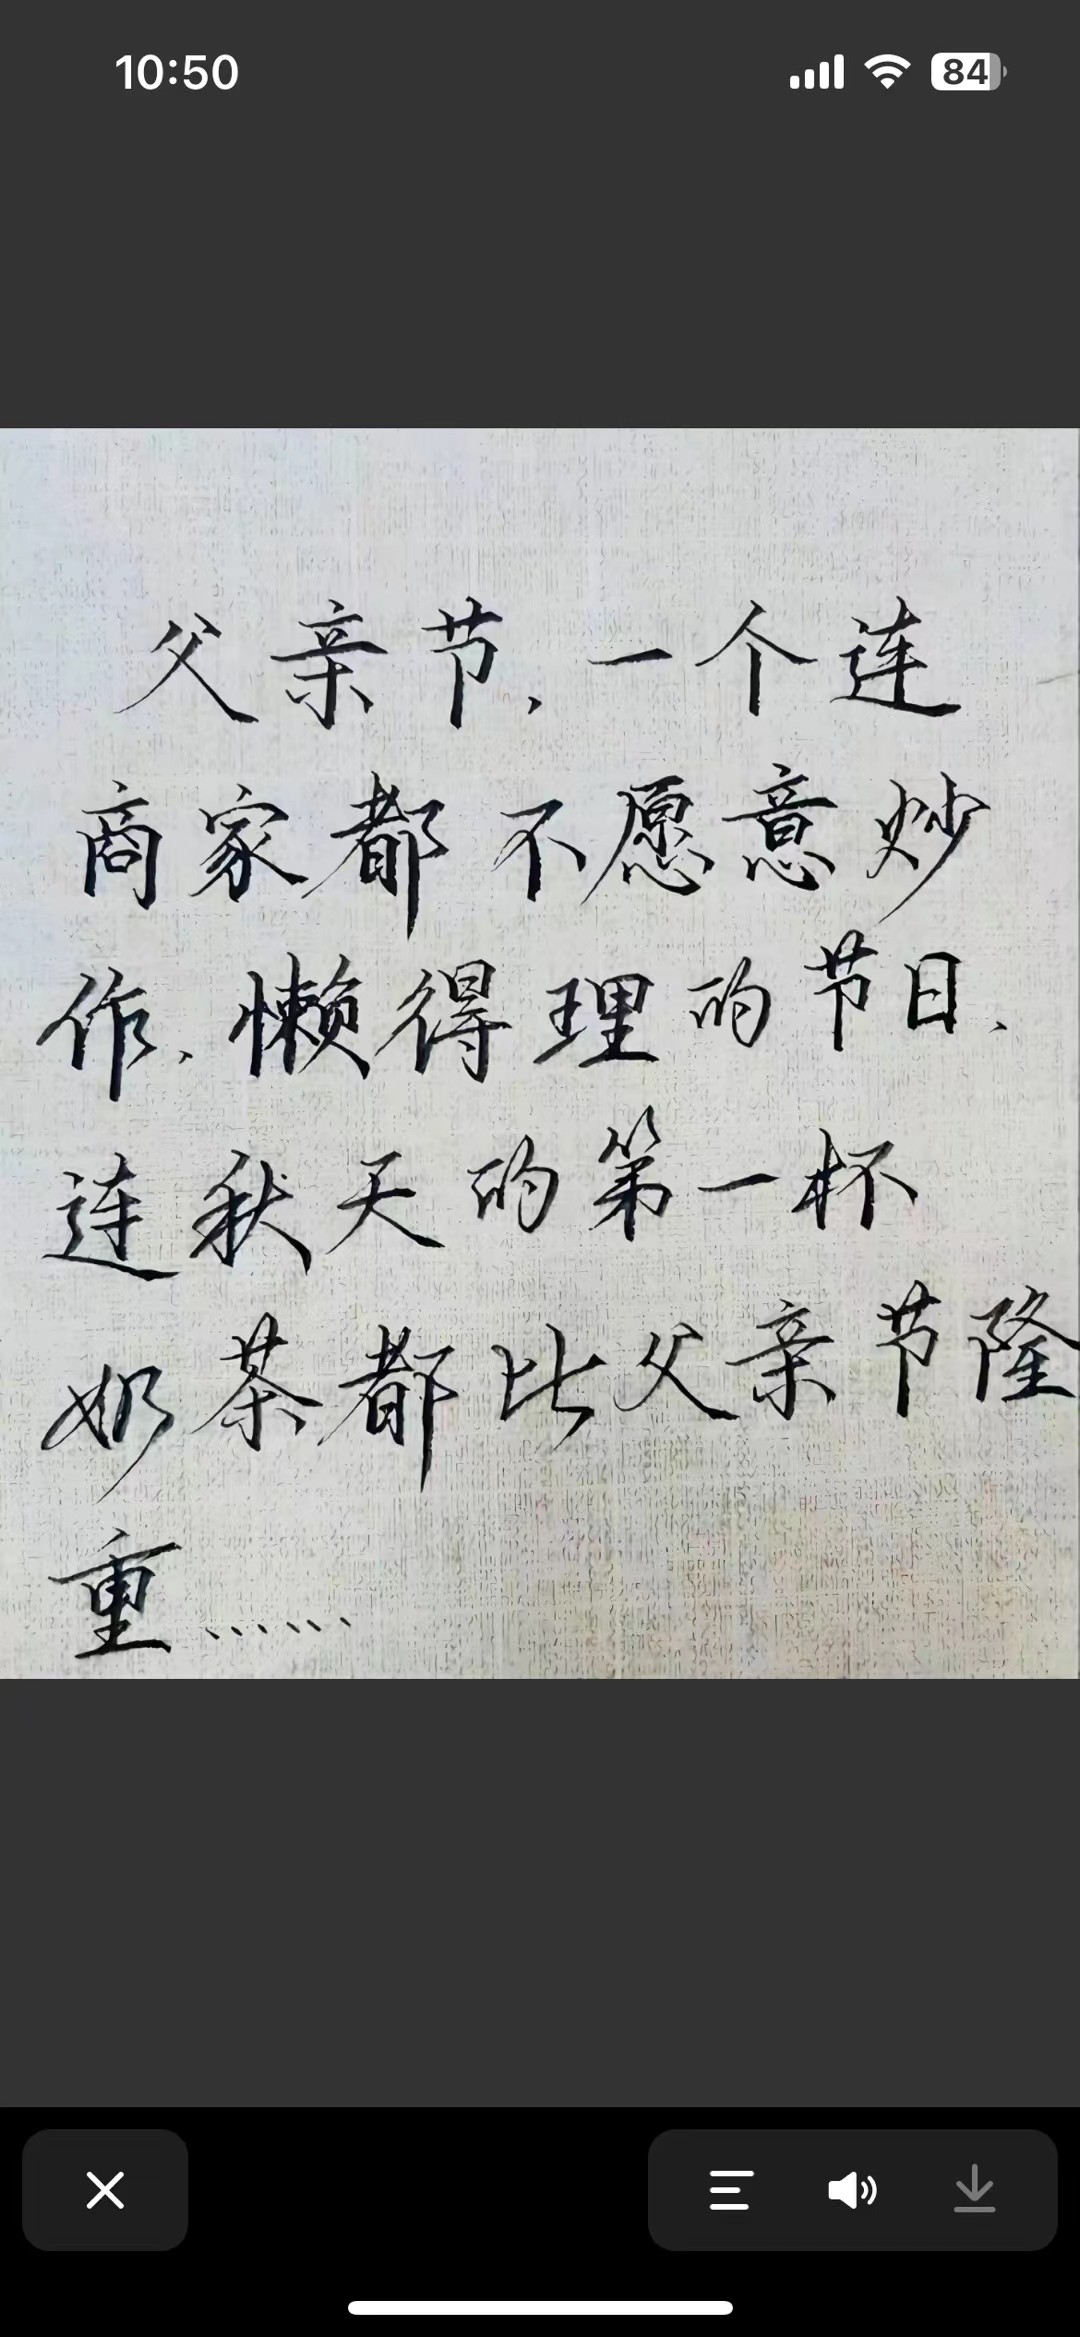 10:50
84
父亲节,一个连
商家都不愿意炒
作,懒得理的节日、
连秋天的第一杯
奶茶都比父亲节隆
重......